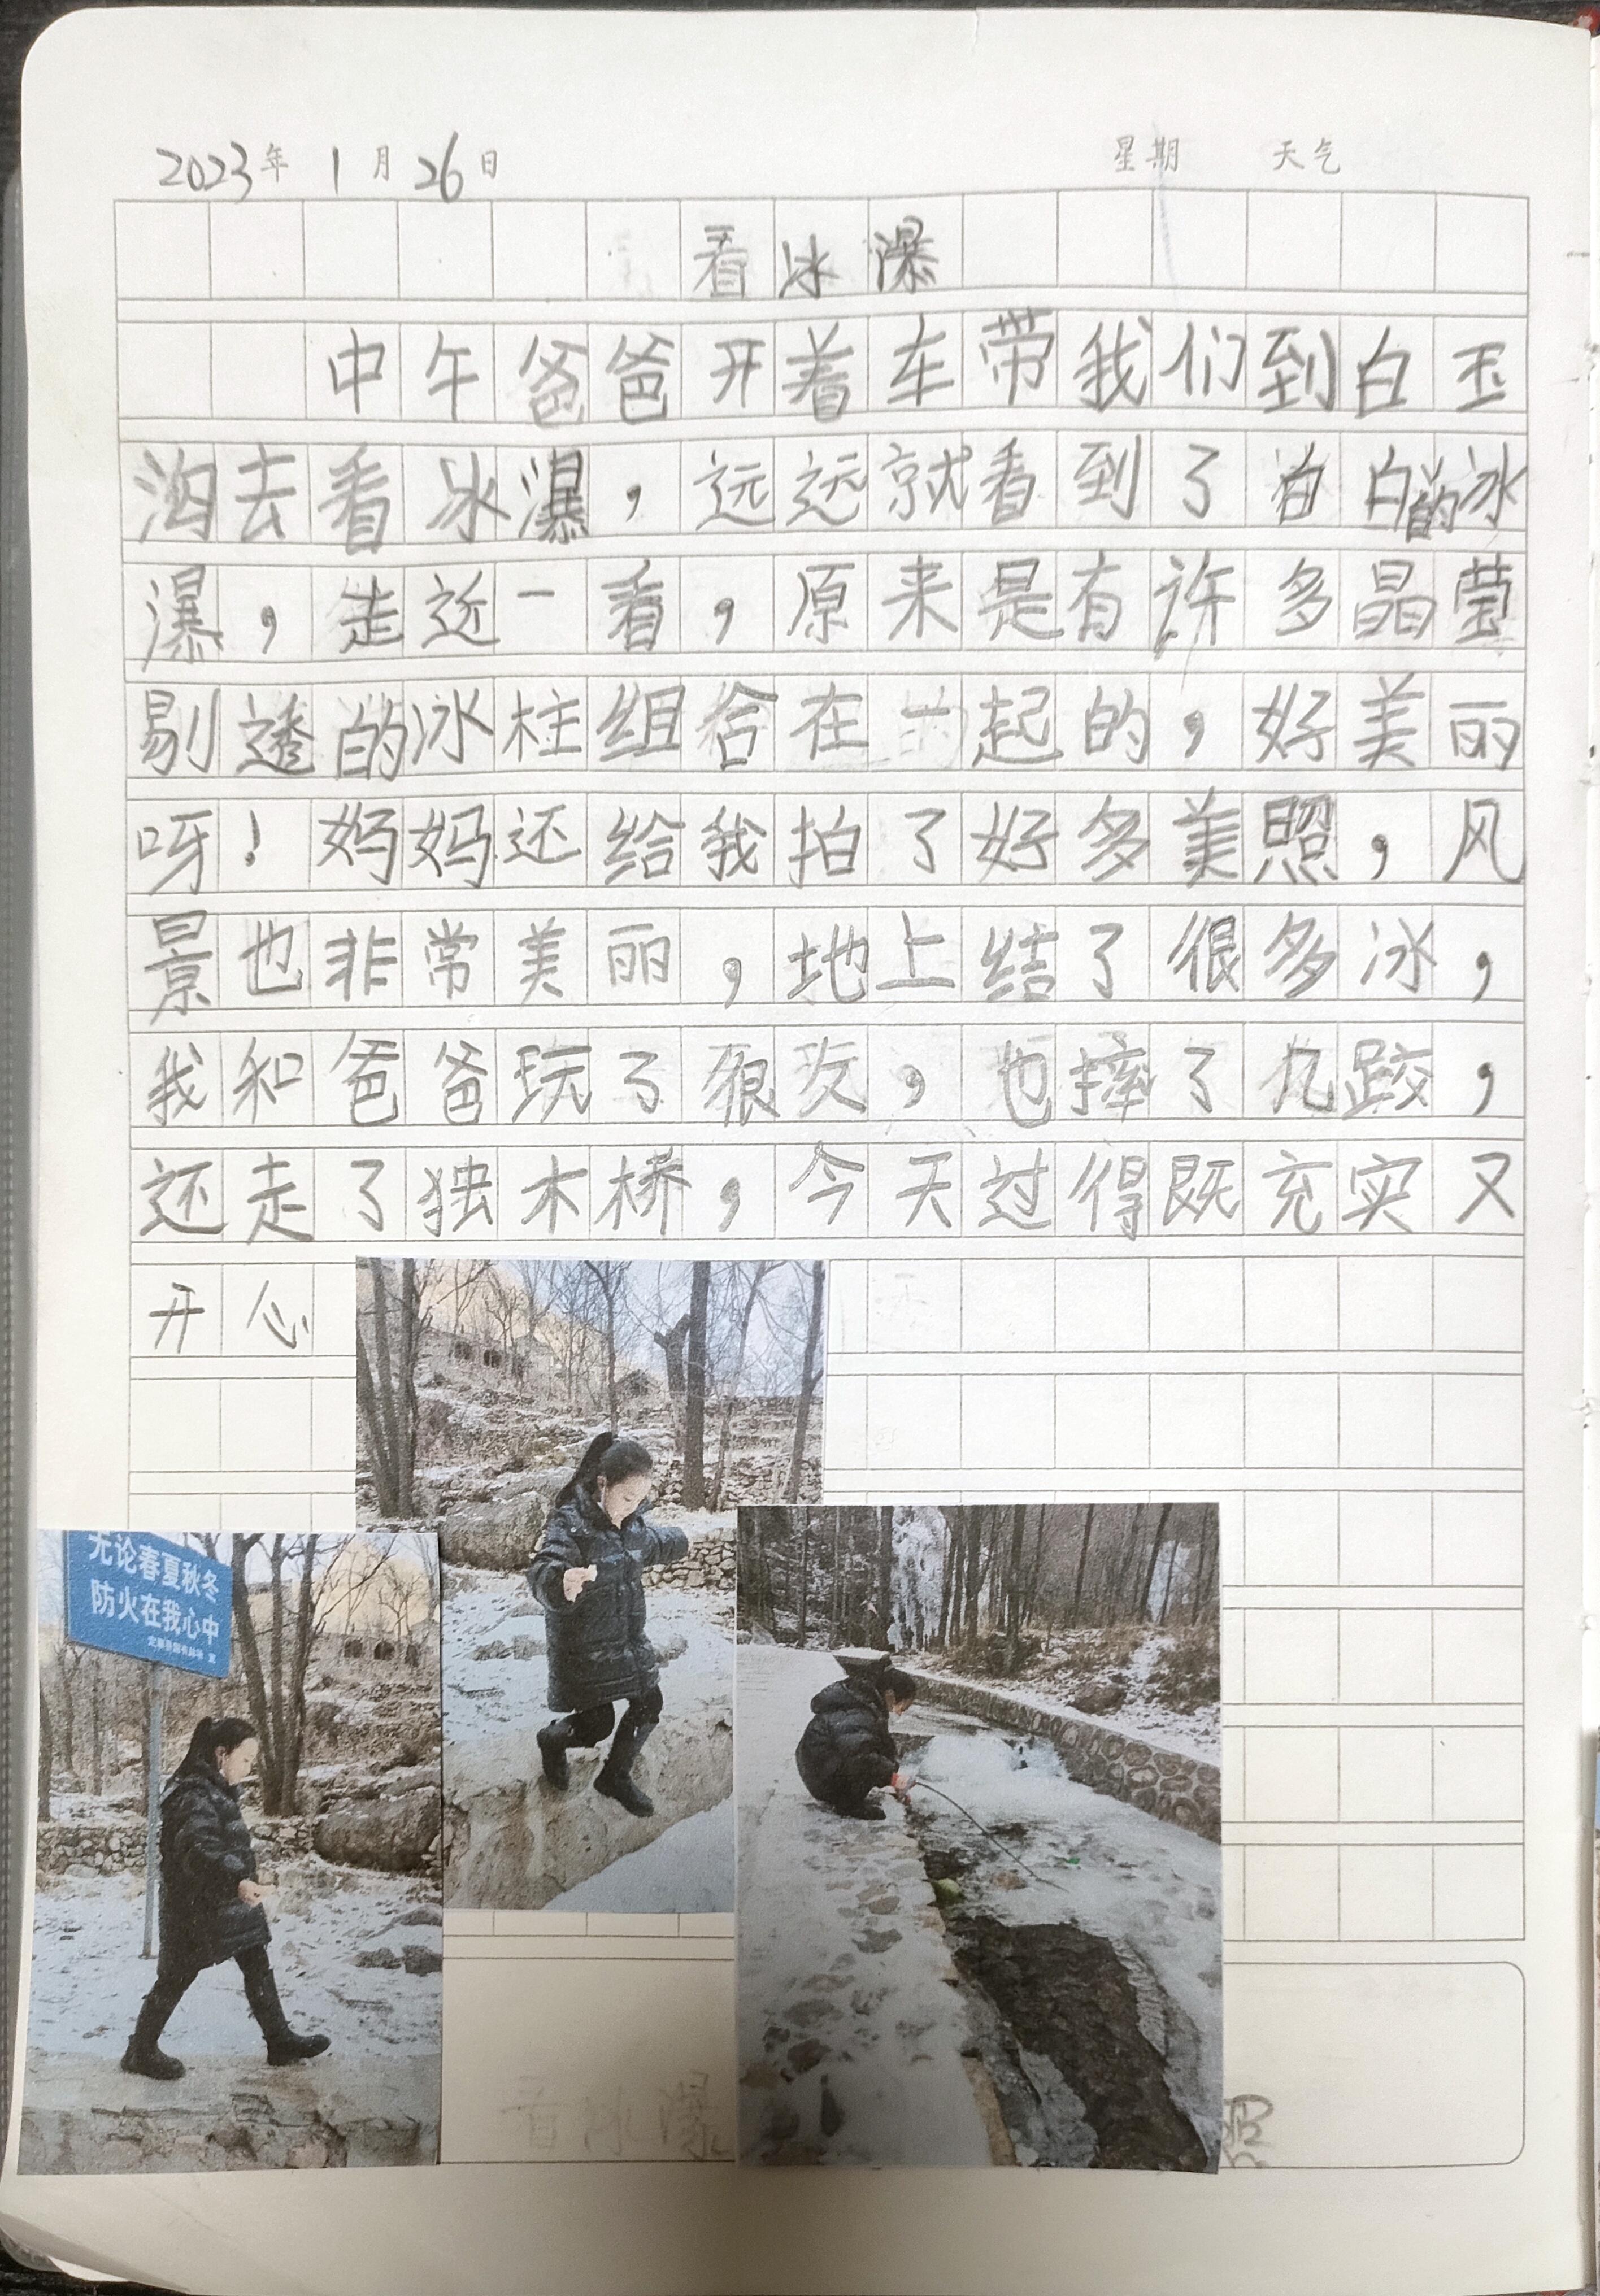 2023年 1月 26日 星期 天气
看冰瀑
中午爸爸开着车带我们到白玉
沟去看冰瀑，远远就看到了白白的冰
瀑，走近一看，原来是有许多晶莹
剔透的冰柱组合在一起的，好美丽
呀！妈妈还给我拍了好多美照，风
景也非常美丽，地上结了很多冰，
我和爸爸玩了很久，也摔了几跤，
还走了独木桥，今天过得既充实又
开心
无论春夏秋冬
防火在我心中